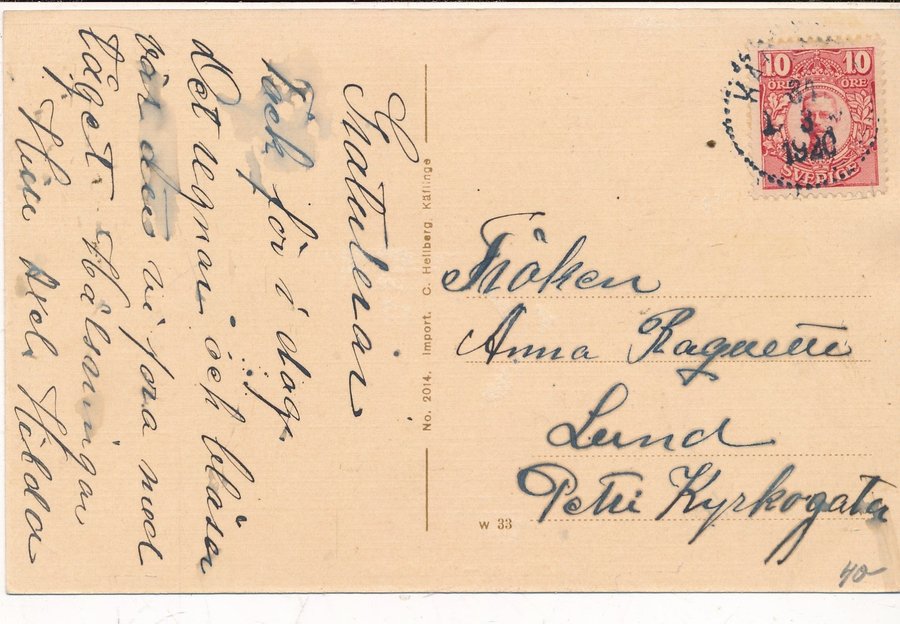 Gratulerar
Tack för i dag.
det regnar och blåser
vår den vi fora med
tåget. Hälsningar
Axel Hilda
No. 2014. Import. C. Hellberg, Käflinge
W 33
10 10
ÖRE ÖRE
SVERIGE
1 3
1920
Fröken
Anna Raquette
Lund
Petri Kyrkogata
40-